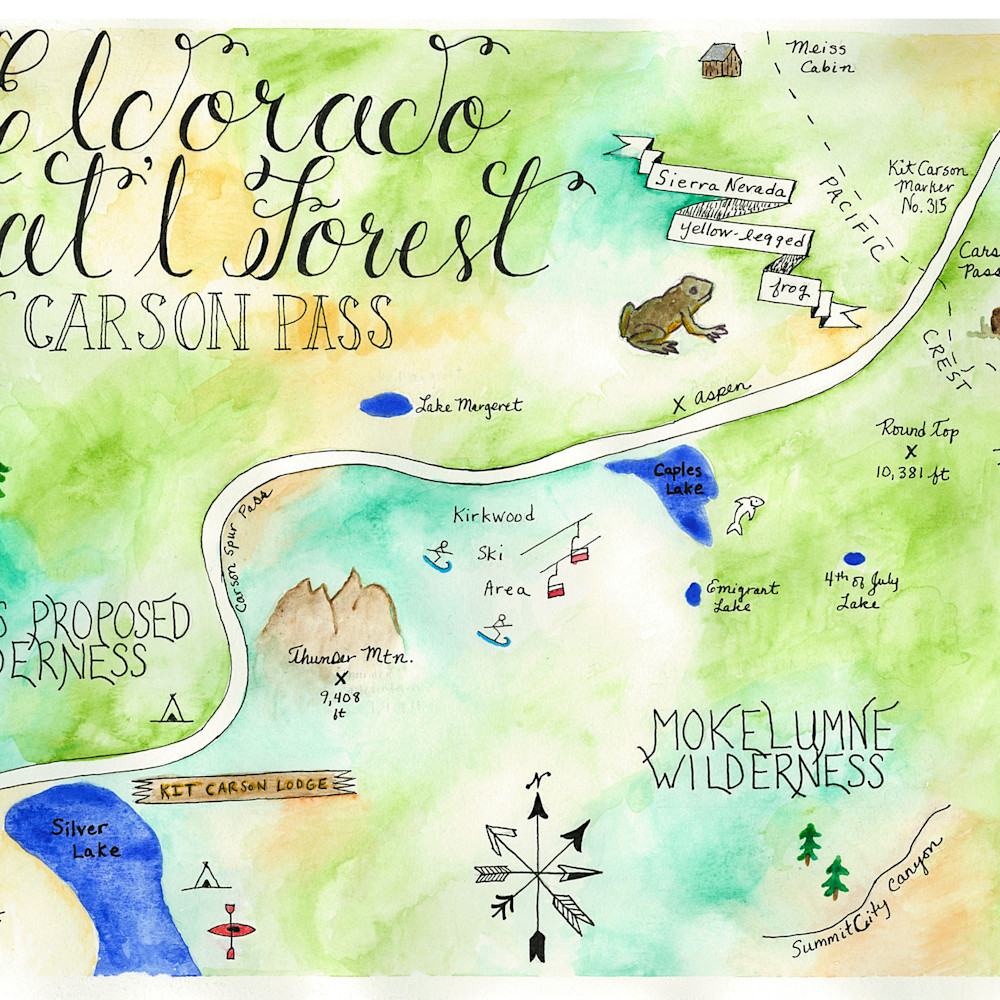 Eldorado
Nat'l Forest
CARSON PASS
Meiss
Cabin
Sierra Nevada
yellow-legged
frog
PACIFIC
CREST
Kit Carson
Marker
No. 315
Pass
Lake Margeret
X Aspen
Round Top
X
10,381 ft
Caples
Lake
Carson Spur Pass
Kirkwood
Ski
Area
Emigrant
Lake
4th of July
Lake
PROPOSED
Thunder Mtn.
X
9,408
ft
MOKELUMNE
WILDERNESS
KIT CARSON LODGE
N
Silver
Lake
Summit City Canyon